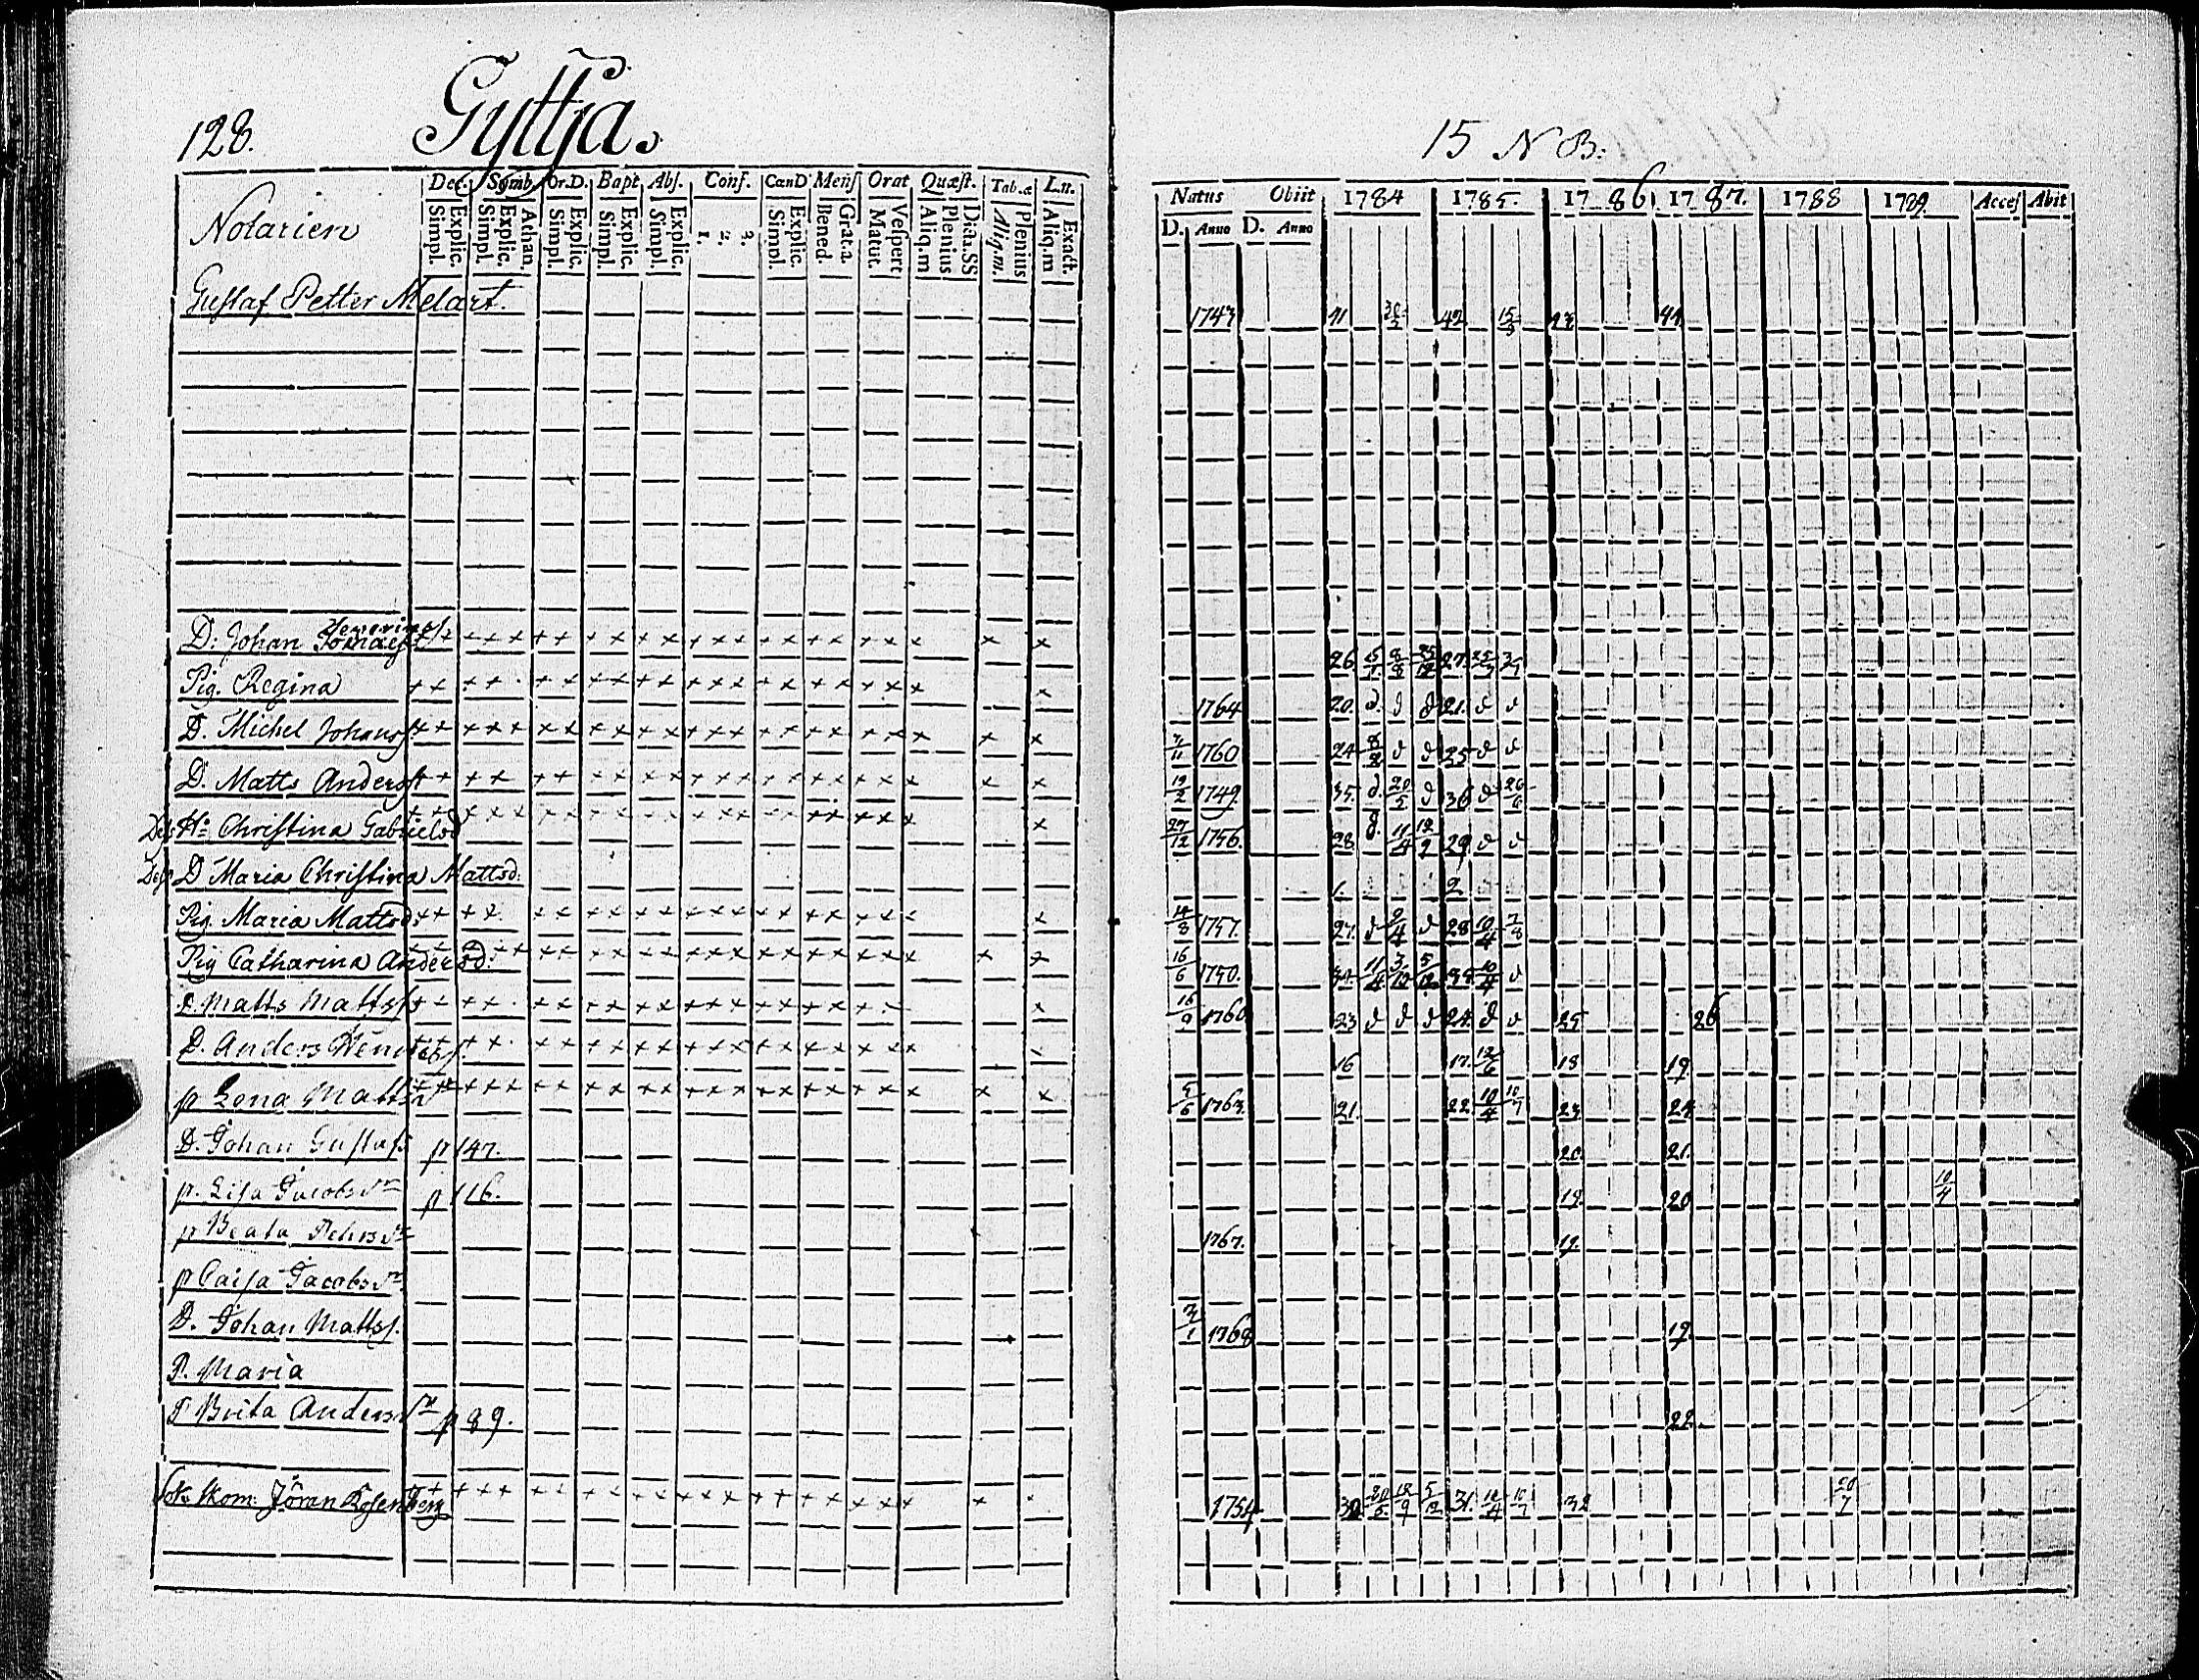 128.
Gyttja.
Dec. Symb. Or.D. Bapt Abs. Conf. CœnD Menſ Orat Quæſt. Tab.æ L.n.
Simpl. Explic. Simpl. Explic. Athan. Simpl. Explic. Simpl. Explic. Simpl. Explic. 1. 2. 3. Simpl. Explic. Bened. Grat.æ Matut. Veſpert. Aliq.m Plenius Dicta.SS Aliq.m. Plenius Aliq.m Exact.
Notarien
Guſtaf Petter Melart.
D: Johan
Pig. Regina
D. Michel Johansſ
D. Matts Andersſ
Des H: Chriſtina Gabrielsd
Des D Maria Chriſtina Mattsd:
Pig. Maria Mattsd:
Pig Catharina Andersd:
D. Matts Mattsſ
D. Anders
p Lena Mattsdr
D. Johan Guſtafs p 147.
p. Liſa Jacobsdr p 116.
p Beata Pehrsdr
p Caiſa Jacobsdr
D. Johan Mattsſ.
P. Maria
P Brita Andersdr p 89.
Sok. Skom. Jöran Roſenberg
15 N B:
Natus Obiit 1784 1785. 1786 1787. 1788 1789. Acceſ Abit
D. Anno D. Anno
1743 41 42 15/3 43 44
26. 27.
1764 20. 21.
1760 24 25
19/2 1749 35. 20/5 36 26/6
27/12 1756. 28 11/4 29
1. 2
14/8 1757. 27. 2/4 28 10/4 7/8
16/6 1750. 34. 11/4 3/12 35 10/4
16/9 1760 23 24. 25 26
16 17. 12/6 18 19
5/6 1763. 21. 22 10/4 10/7 23 24
20. 21.
19. 20 10/4
1767. 19.
3/1 1768 19.
22.
1754 30 12/9 5/12 31. 10/4 10/7 32 20/7